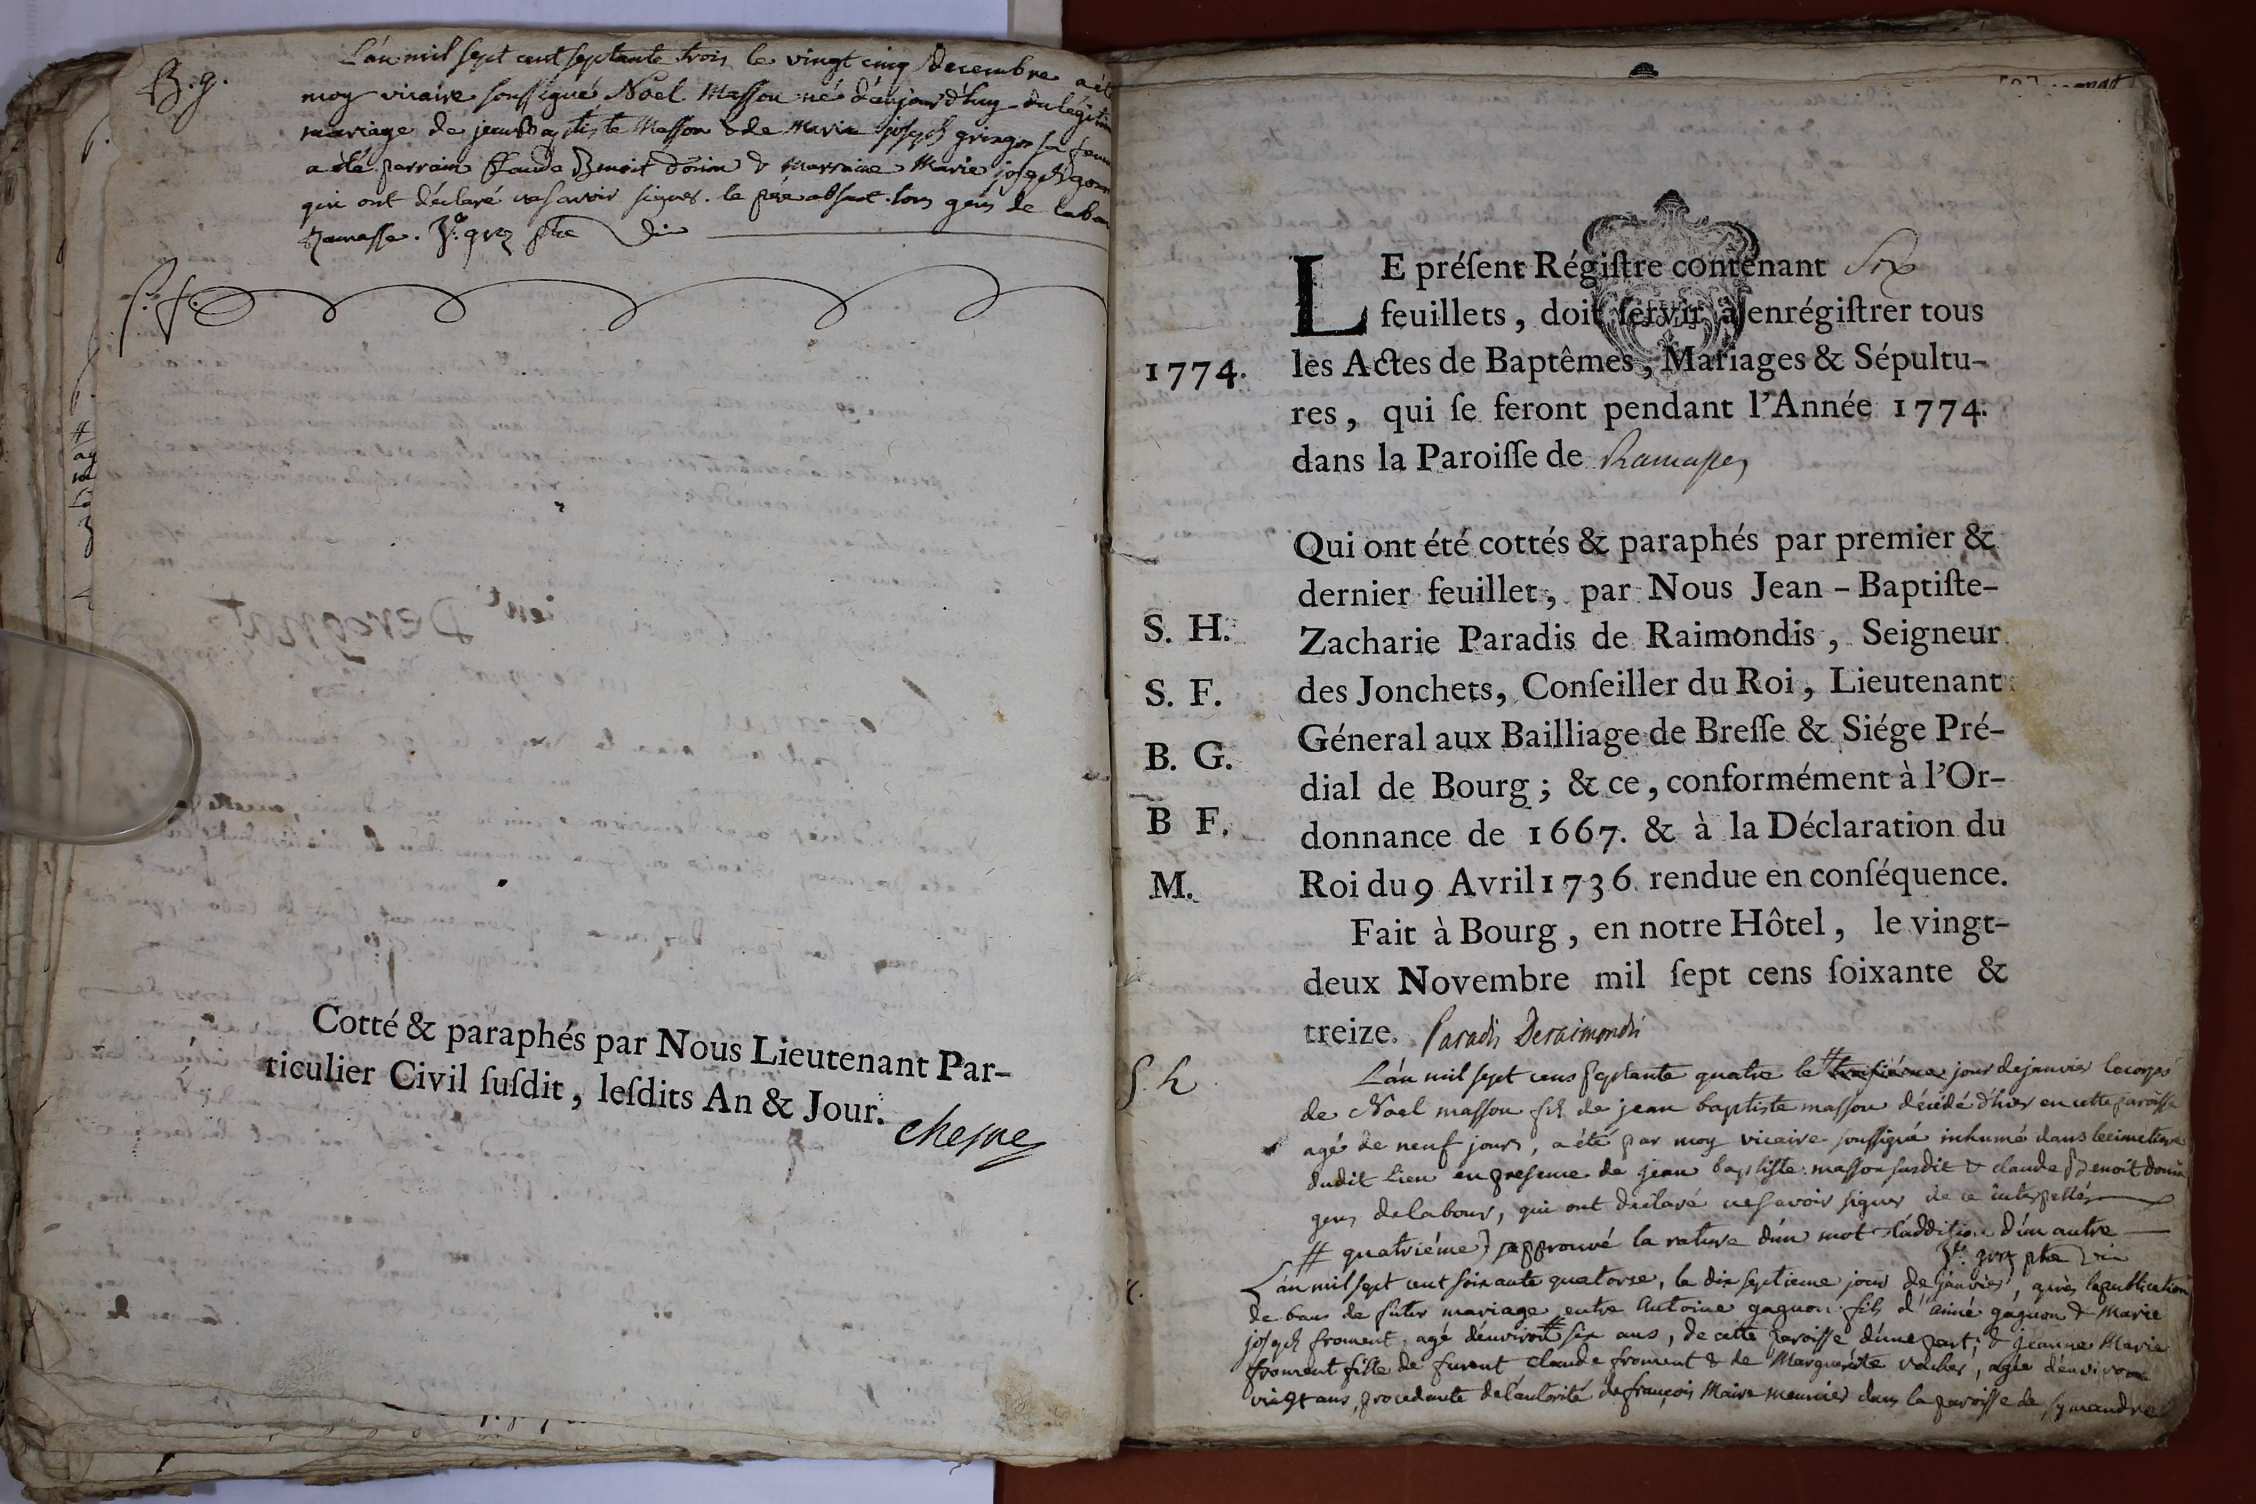 B. g.
L'an mil sept cent septante trois le vingt cinq decembre a été
moy vicaire soussigné Noel Masson né d'aujourd'huy du légitim
mariage de jean Baptiste Masson & de Marie joseph gringoz sa fem
a été parrain Claude Benoit Donin & marraine Marie joseph
qui ont déclaré ne savoir signer. le père absent. tous gens de labou
Ramasse.
S. f.
Cotté & paraphés par Nous Lieutenant Par-
ticulier Civil ſuſdit, leſdits An & Jour.
chesne
LE préſent Régiſtre contenant Six
feuillets, doit ſervir à enrégiſtrer tous
1774. les Actes de Baptêmes, Mariages & Sépultu-
res, qui ſe feront pendant l'Année 1774.
dans la Paroiſſe de Ramasse
Qui ont été cottés & paraphés par premier &
dernier feuillet, par Nous Jean-Baptiſte-
S. H. Zacharie Paradis de Raimondis, Seigneur
S. F. des Jonchets, Conſeiller du Roi, Lieutenant
Géneral aux Bailliage de Breſſe & Siége Pré-
B. G. dial de Bourg; & ce, conformément à l'Or-
B F. donnance de 1667. & à la Déclaration du
M. Roi du 9 Avril 1736. rendue en conſéquence.
Fait à Bourg, en notre Hôtel, le vingt-
deux Novembre mil ſept cens ſoixante &
treize. Paradis Deraimondis
S. h
L'an mil sept cens septante quatre le # troisième jour de janvier le corps
de Noel masson fils de jean baptiste masson décédé d'hier en cette paroisse
agé de neuf jours, a été par moy vicaire soussigné inhumé dans le cimetiere
dudit lieu en presence de jean baptiste masson susdit & claude Benoit donin
gens de labour, qui ont déclaré ne savoir signer de ce interpellés
# quatriéme) approuvé la rature d'un mot & l'addition d'un autre
L'an mil sept cent soixante quatorse, le dix septieme jour de janvier, après la publication
de bans de futur mariage entre Antoine gagnon fils d'aimé gagnon & Marie
joseph froment agé d'environ # six ans, de cette paroisse d'une part; & jeanne Marie
froment fille de furent claude froment & de Marguerite vacher, agée d'environ
vingt ans, procedante de l'autorité de françois Maire meunier dans la paroisse de symandre